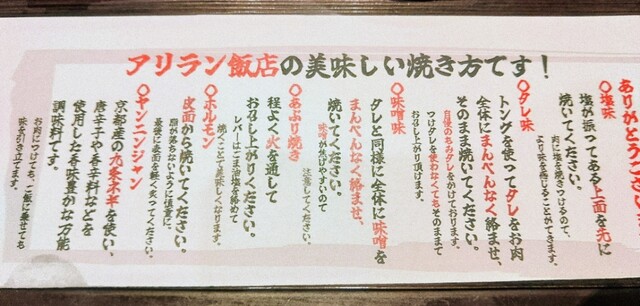 アリラン飯店の美味しい焼き方です！
ありがとうござい
○塩味
塩が振ってある上面を先に
焼いてください。
お肉に塩を焼きつけるので、
より味を感じることができます。
○タレ味
トングを使ってタレをお肉
全体にまんべんなく絡ませ、
そのまま焼いてください。
自慢のもみダレをかけております。
つけダレを使わなくてもそのままで
お召し上がり頂けます。
○味噌味
タレと同様に全体に味噌を
まんべんなく絡ませ、
焼いてください。
味噌が焦げやすいので
注意してください。
○あぶり焼き
程よく火を通して
お召し上がりください。
レバーはごま油塩を絡めて
焼くことで美味しくなります。
○ホルモン
皮面から焼いてください。
脂が落ちないように慎重に、
最後に表面を軽く炙ってください。
○ヤンニンジャン
京都産の九条ネギを使い、
唐辛子や香辛料などを
使用した香味豊かな万能
調味料です。
お肉につけても、ご飯に乗せても
味を引き立てます。